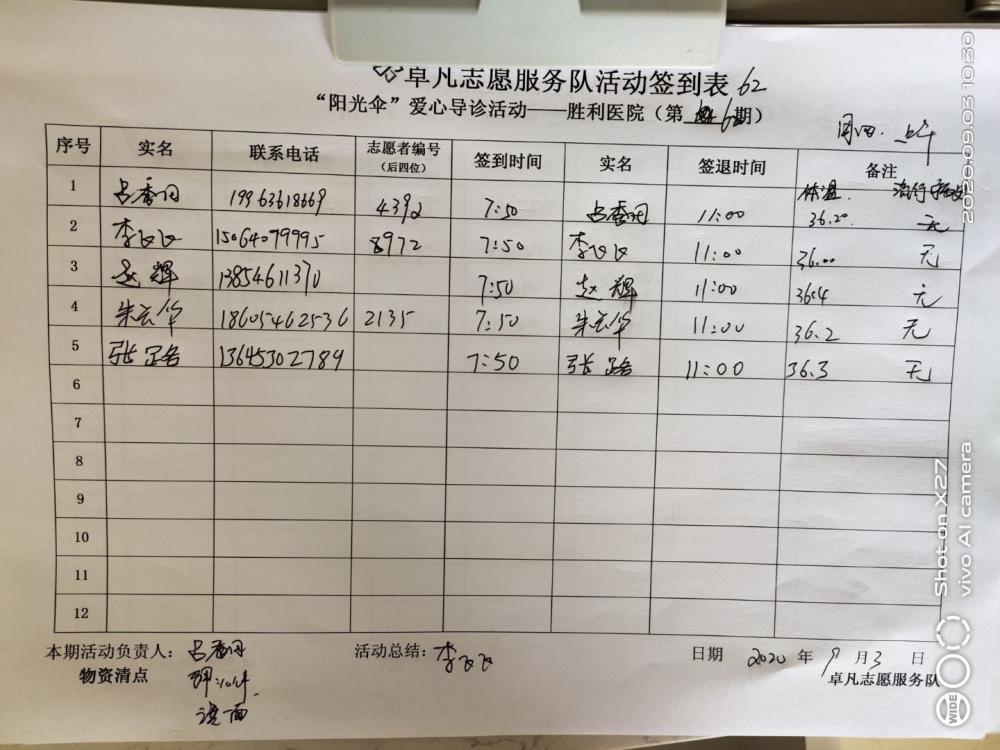 卓凡志愿服务队活动签到表 62
“阳光伞”爱心导诊活动——胜利医院（第 6 期）
周四. 上午
序号 实名 联系电话 志愿者编号（后四位） 签到时间 实名 签退时间 备注
体温
1 占香 19963618669 4392 7:50 占香 11:00 36.2° 无
2 李 15064079995 8972 7:50 李 11:00 36.00 无
3 赵辉 13854611370 7:50 赵辉 11:00 36.4 无
4 朱云华 18605462536 2135 7:50 朱云华 11:00 36.2 无
5 张 13645302789 7:50 张 11:00 36.3 无
6
7
8
9
10
11
12
本期活动负责人： 占香 活动总结： 李 日期 2020 年 9 月 3 日
物资清点 卓凡志愿服务队
2020.09.03 10:30
Shot on X27
vivo AI camera
WIDE